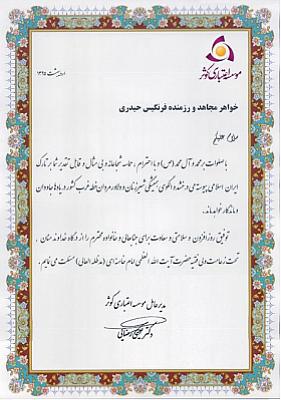 موسسه اعتباری کوثر
اردیبهشت ۱۳۹۵
خواهر مجاهد و رزمنده فرنگیس حیدری
سلام علیکم
با صلوات بر محمد و آل محمد (ص) و با احترام ، حماسه شجاعانه و بی مثال و قابل تقدیر شما بر تارک
ایران اسلامی پیوسته می درخشد و الگوی همیشگی شیرزنان و دلاورمردان خطه غرب کشور در یادها جاودان
و ماندگار خواهد ماند.
توفیق روز افزون و سلامتی و سعادت برای جنابعالی و خانواده محترم را از درگاه خداوند منان ،
تحت زعامت ولی فقیه حضرت آیت الله العظمی امام خامنه ای (مدظله العالی) مسئلت می نمایم .
مدیر عامل موسسه اعتباری کوثر
دکتر